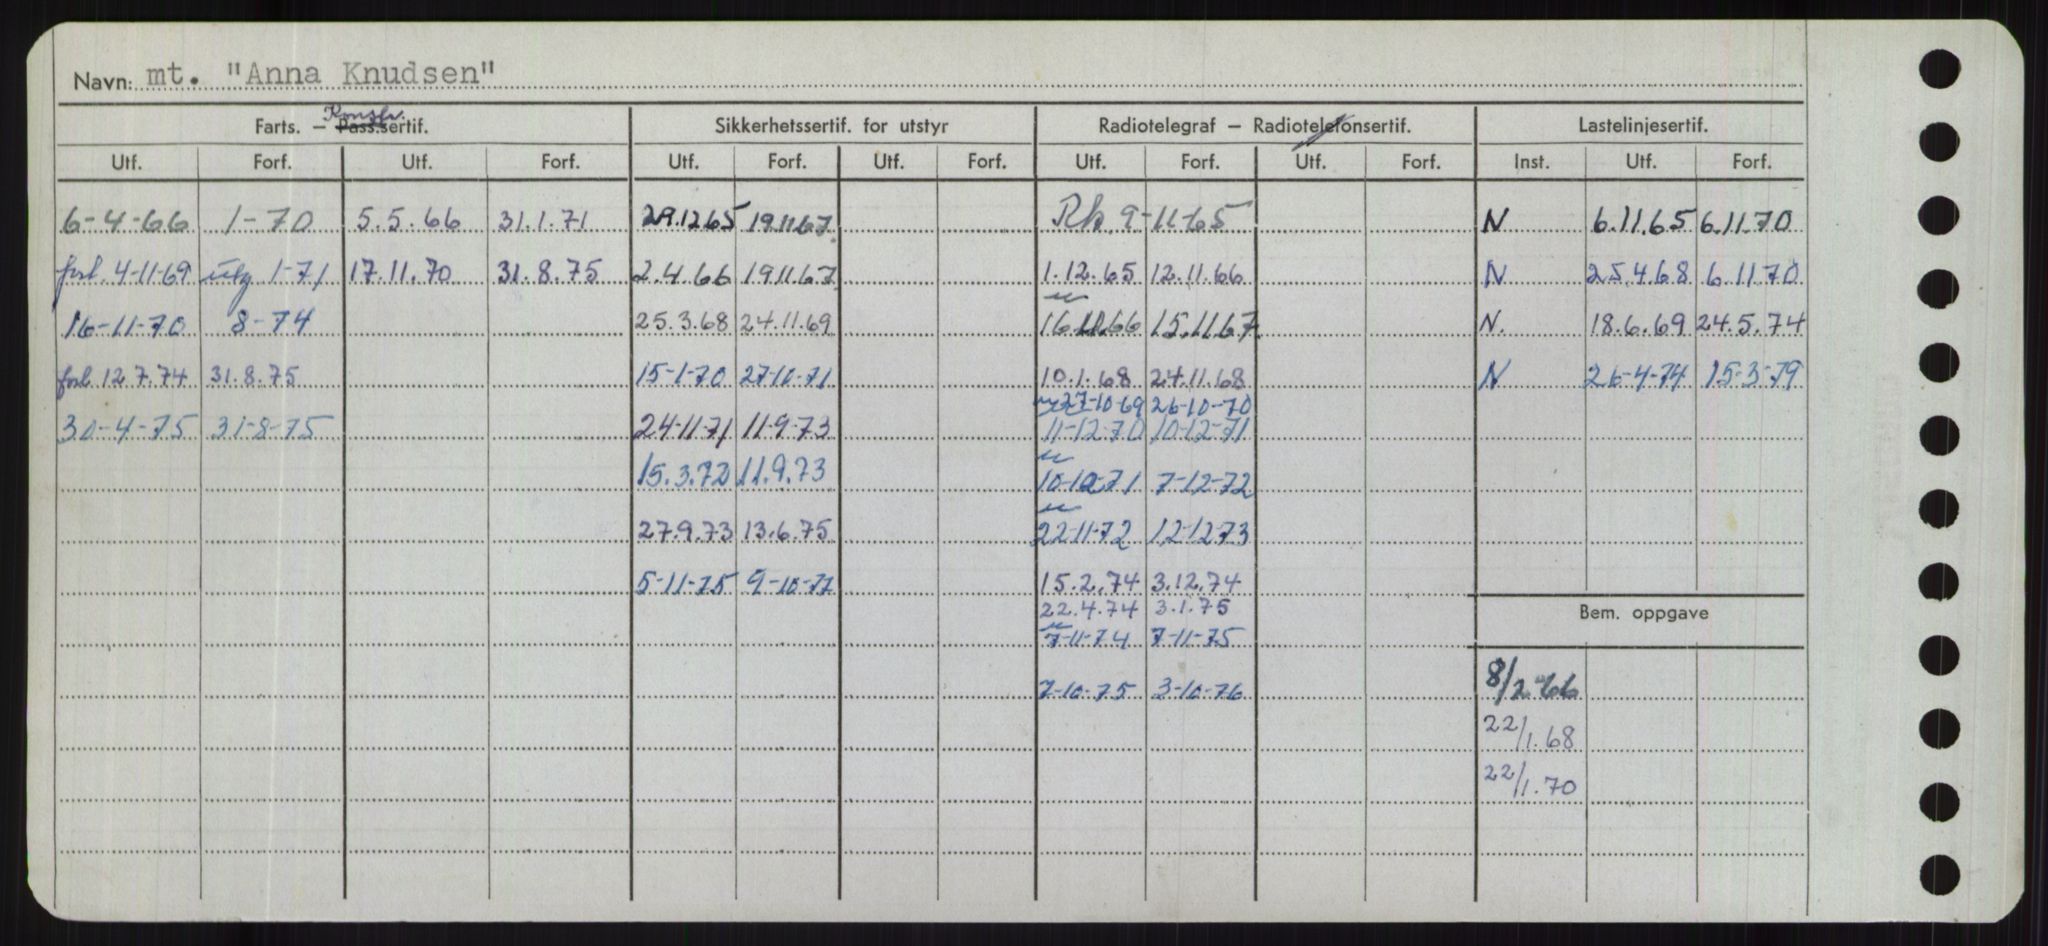 Navn: mt. "Anna Knudsen"
Konstr.
Farts. – Pass.sertif. Sikkerhetssertif. for utstyr Radiotelegraf – Radiotelefonsertif. Lastelinjesertif.
Utf. Forf. Utf. Forf. Utf. Forf. Utf. Forf. Utf. Forf. Utf. Forf. Inst. Utf. Forf.
6-4-66 1-70 5.5.66 31.1.71 29.12.65 19.11.67. Rk. 9-11-65 N 6.11.65 6.11.70
forl. 4-11-69 utg 1-71 17.11.70 31.8.75 2.4.66 19.11.67 1.12.65 12.11.66 N 25.4.68 6.11.70
16-11-70 8-74 25.3.68 24.11.69 16.11.66 15.11.67. N. 18.6.69 24.5.74
forl. 12.7.74 31.8.75 15-1-70 27-10-71 10.1.68 24.11.68 N 26-4-74 15-3-79
27-10-69 26-10-70
30-4-75 31-8-75 24-11-71 11-9-73 11-12-70 10-12-71
15.3.72 11.9.73 10-12-71 7-12-72
27.9.73 13.6.75 22-11-72 12-12-73
5-11-75 9-10-77 15.2.74 3.12.74
22.4.74 3.1.75
Bem. oppgave
7-11-74 7-11-75
7-10-75 3-10-76 8/2-66
22/1.68
22/1.70